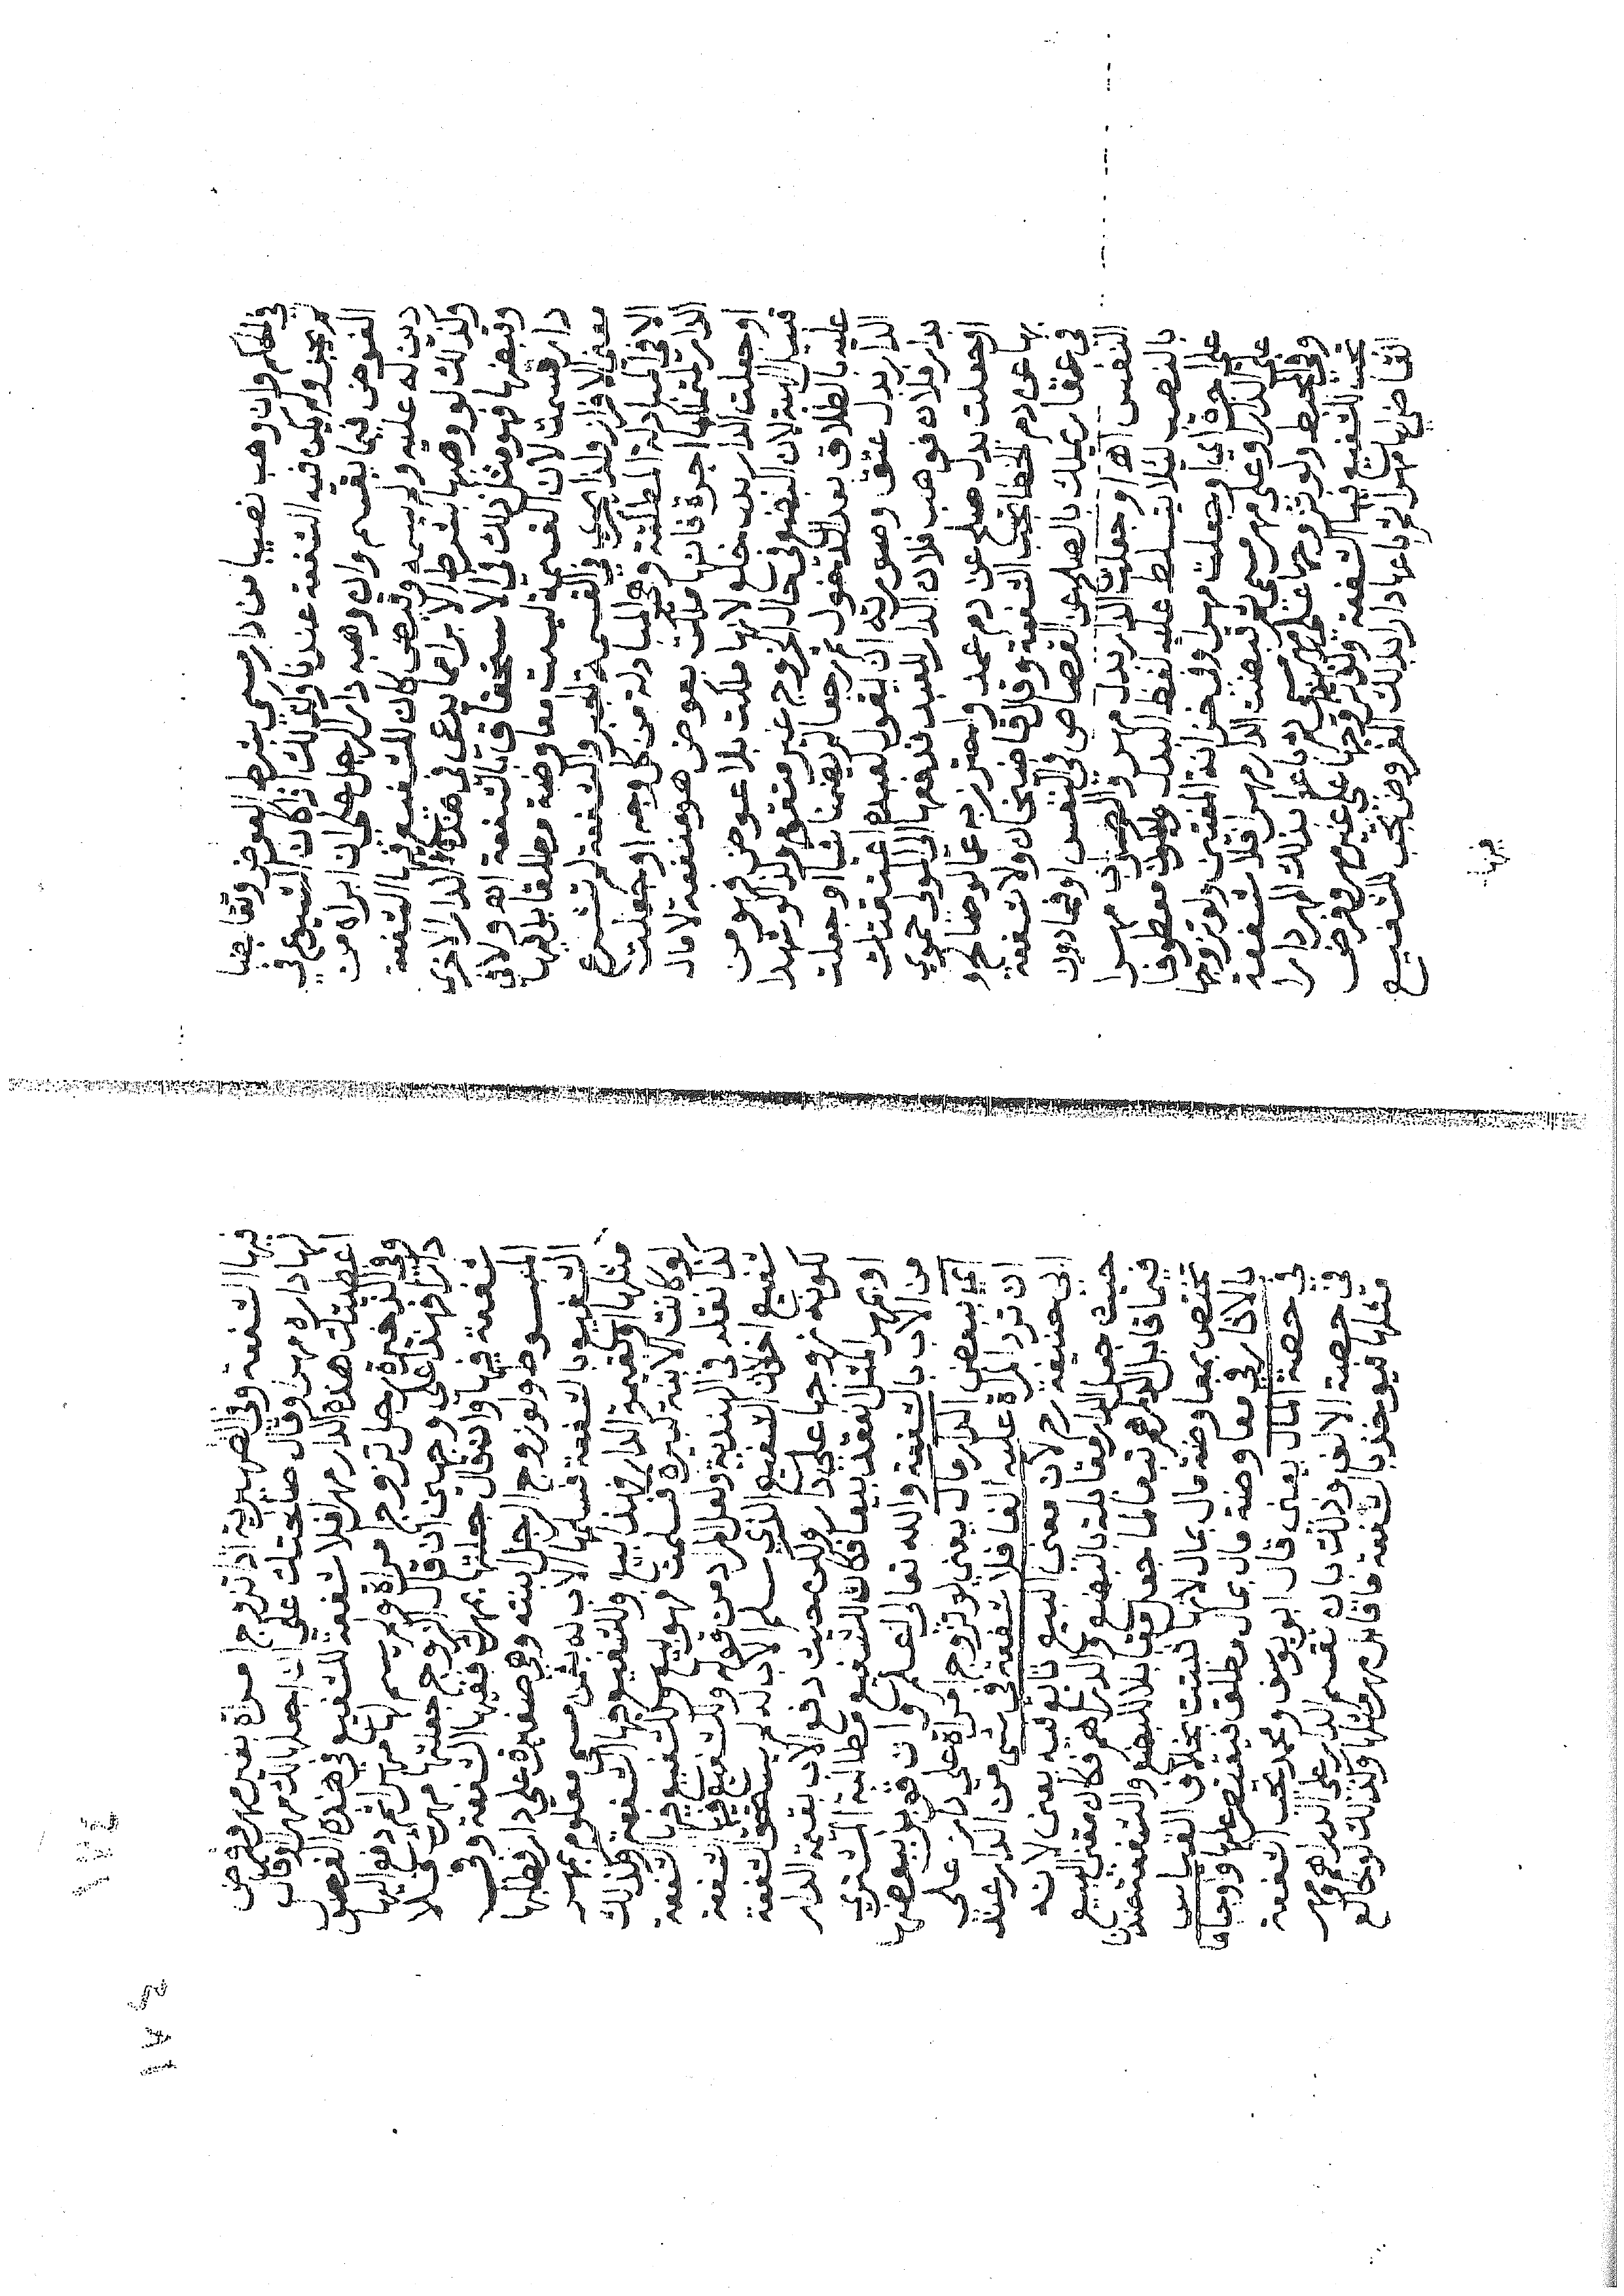 في الحكم وان وهب نصيبا من دار مسمى بشرط العوض وتقابضا
لم يجز ولم يكن فيه الشفعة عندنا وكذلك اذا كان الشيوع في
العوض فيما يقسم وان وهبه دارا لرجل على ان ابراه من
دين له عليه ولم يسمه وقبض كان للشفيع فيها الشفعة
وكذلك لو وهبها بشرط الابرا مما يدعى في هذه الدار الاخرى
وقبضها فهو مثل ذلك في الاستحقاق بالشفعة اهـ ولا في
دار قسمت لان القسمة ليست معاوضة مطلقا بل فيها
معنى الافراز ولذا يجري في القسمة الجبر والشفعة لم تشرع
الا في المبادلة المطلقة وهي المبادلة من كل وجه او جعلت
الدار اجرة فانها ملكت بعوض هو منفعة لا مال
او جعلت الدار بدل خلع لانها ملكت بلا عوض فهو من
قبيل الهبة لان البضع في حال الخروج غير متقوم وكذا لو شهدا
عليه بالطلاق بعد الدخول ثم رجعا لم يضمنا شيا او جعلت
الدار بدل عتق وصورته ان يقول لعبده اعتقتك
بدار فلان فوهب فلان الدار للعبد فدفعها الى المولى حموي
او جعلت بدل صلح عن دم عمد واحترز به عما لو صالح
بها عن دم الخطا تجب الشفعة وقال قاضيخان ولا شفعة
في عقار يملك بالصلح عن القصاص في النفس او فيما دون
النفس اهـ او جعلت الدار بدل مهر والصواب مهرا
بالنصب ليلا يتسلط عليه لفظ البدل ويكون معطوفا
على اجرة اي او جعلت مهرا وفي خزانة المفتين ولو تزوجها
على الدار او على مهر مسمى ثم قبضت الدار مهرا فلا شفعة
وفي المحيط ولو تزوجها على مهر مسمى ثم باعها بذلك المهر دارا
تجب للشفيع فيها الشفعة ولو تزوجها على غير مهر وفرض
القاضي لها مهرا ثم باعها دارا بذلك الفرض تجب للشفيع
فيها
فيها الشفعة وفي الظهيرية اذا تزوج امراة بغير مهر وفرض
لها داره مهرا وقال صالحتك على ان اجعلها لك مهرا او قال
اعطيتك هذه الدار مهرا فلا شفعة للشفيع في هذه الفصول
وفي الذخيرة رجل تزوج امراة ولم يسم لها مهرا ثم دفع اليها
دارا فهذا على وجهين ان قال الزوج جعلتها مهرك فلا
شفعة فيها وان قال جعلتها بمهرك ففيها الشفعة وفي
المبسوط ولو زوج الرجل ابنته وهي صغيرة على دار فطلبها
الشفيع بالشفعة فسلمها الاب له بثمن مسمى معلوم بمهر
مثلها او بقيمة الدار فهذا بيع وللشفيع فيها الشفعة وكذلك
لو كانت الابنة كبيرة فسلمت فهو بيع وللشفيع فيها الشفعة
كذا نقله في الهندية ولعل المراد من قوله وللشفيع فيها شفعة
شفيع اخر لان الشفيع الذي سلم الاب له لم يستحق الشفعة
لكونه زوجها على دار ولكن حيث دفع الاب بقيمة الدار
او بمهر المثل انعقد بيعا فكان للشفيع مطالبة المشتري
من الاب بالشفعة والله تعالى اعلم وان قوبل ببعضها
اي ببعض الدار مال يعني لو تزوج امراة على دار على
ان ترد المراة عليه الفا فلا شفعة في شي من الدار عند
ابي حنيفة رح لان معنى البيع تابع فيه يعني لانه
حيث جعل الدار مقابلة بالبضع والدراهم فكان معنى البيع
فيما قابل الدراهم تبعا لما جعل مقابلا للبضع والشفعة عندنا
تختص بمعاوضة مال بمال لانها ثبتت بخلاف القياس
بالاثار في معاوضة مال بمال مطلق فيقتصر عليها واوجباها
في حصة المال يعني قال ابو يوسف ومحمد تجب الشفعة
في حصة الالف وذلك بان تقسم الدار على الدراهم ومهر
مثلها فيوخذ بالشفعة ما قابل مهر مثلها وكذلك لو خالع